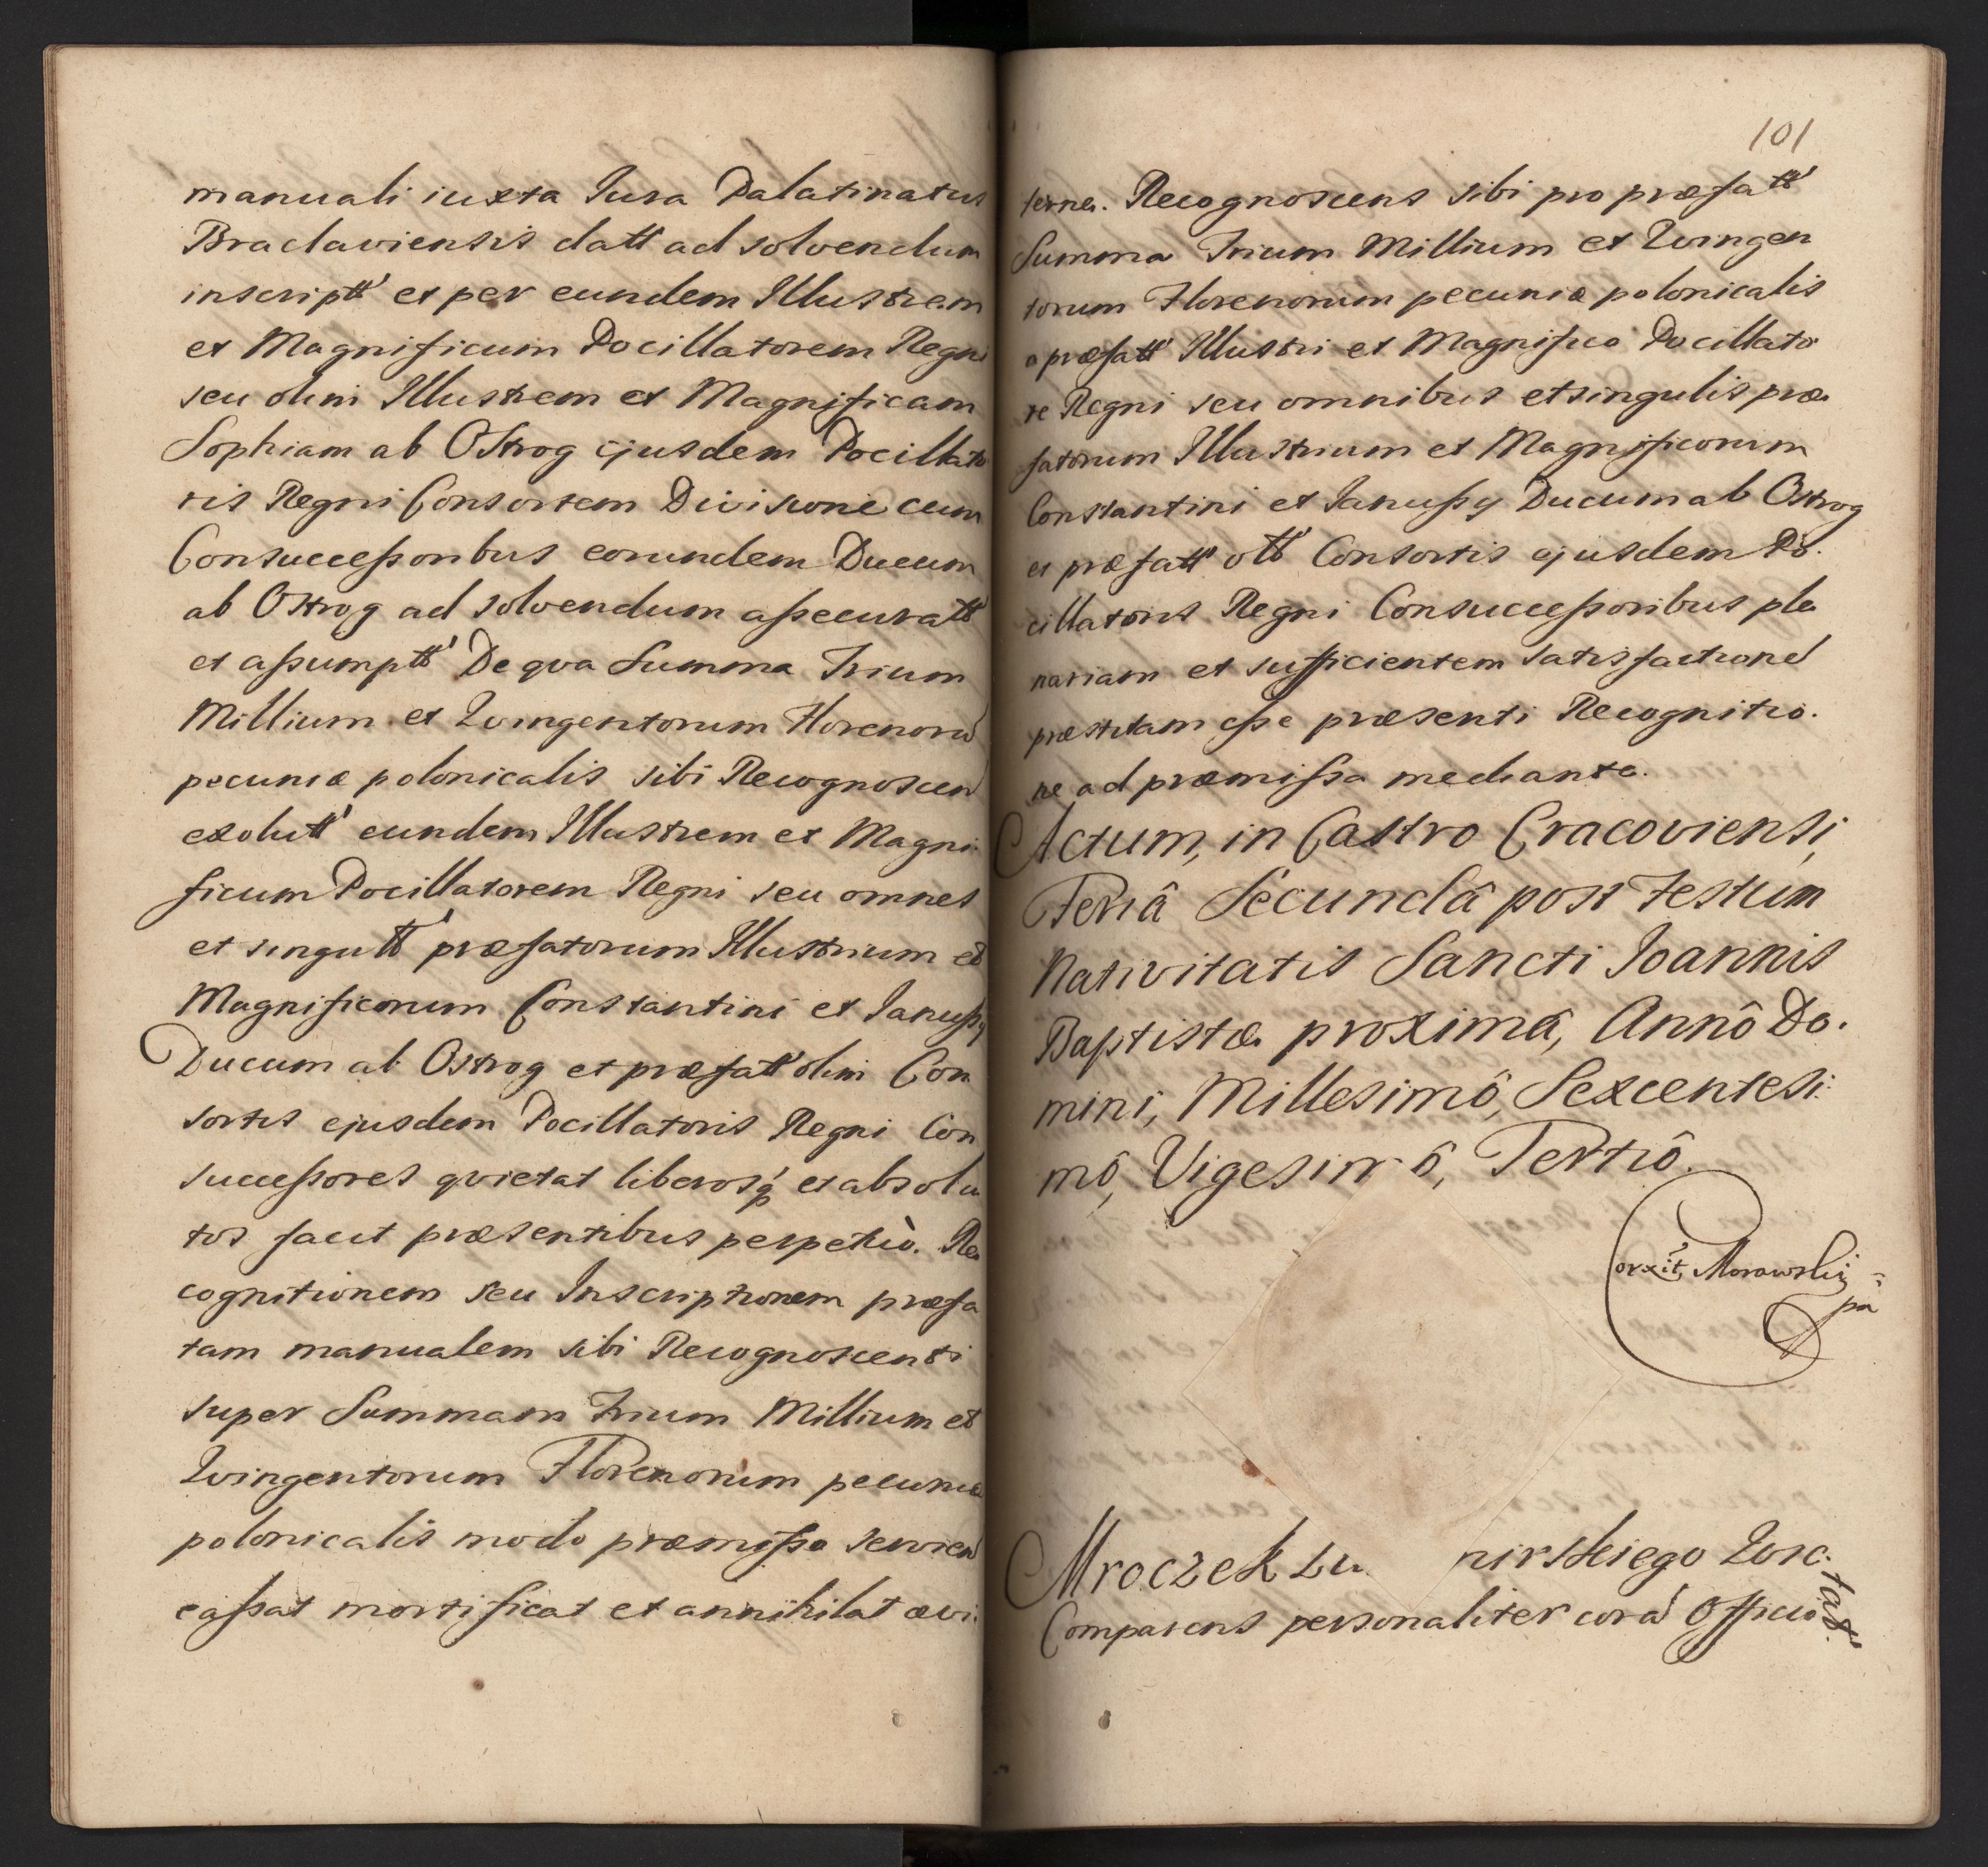 manuali iuxta Iura Palatinatus
Braclaviensis datt ad solvendum
inscriptt' et per eundem Illustrem
et Magnificum Pocillatorem Regni
seu olim Illustrem et Magnificam
Sophiam ab Ostrog ejusdem Pocillato
ris Regni Consortem Divisione cum
Consuccessoribus eorundem Ducum
ab Ostrog ad solvendum assecuratt
et assumptt' De qva Summa Trium
Millium et Qvingentorum Florenorū
pecuniæ polonicalis sibi Recognoscen
exolutt' eundem Illustrem et Magni-
ficum Pocillatorem Regni seu omnes
et singutt' præfatorum Illustrium et
Magnificorum Constantini et Janussy
Ducum ab Ostrog et præfatt' olim Con
sortis ejusdem Pocillatoris Regni Con
successores qvietat liberosq́ et absolu
tos facit præsentibus perpetuò. Re
cognitionem seu Inscriptionem præfa
tam manualem sibi Recognoscenti
super Summam Trium Millium et
Qvingentorum Florenorum pecuniæ
polonicalis modo præmisso servien
cassat mortificat et annihilat ævi-
101
terne. Recognoscens sibi pro præfatt'
Summa Trium Millium et Qvingen
torum Florenorum pecuniæ polonicalis
a præfatt' Illustri et Magnifico Pocillato
re Regni seu omnibus et singulis præ
fatorum Illustrium et Magnificorum
Constantini et Janussy Ducum ab Ostrog
et præfatt' ott' Consortis ejusdem Po-
cillatoris Regni Consuccessoribus ple
nariam et sufficientem satisfactione
præstitam esse præsenti Recognitio-
ne ad præmissa mediante.
Actum, in Castro Cracoviensi,
Feriâ Secundâ post Festum
Nativitatis Sancti Joannis
Baptistæ proximâ, Annô Do-
mini, Millesimô, Sexcentesi-
mô, Vigesimô, Tertiô.
Corxit, Morawskj
Mroczek nirskiego Qvic-
tat.
Comparens personaliter corā Officio